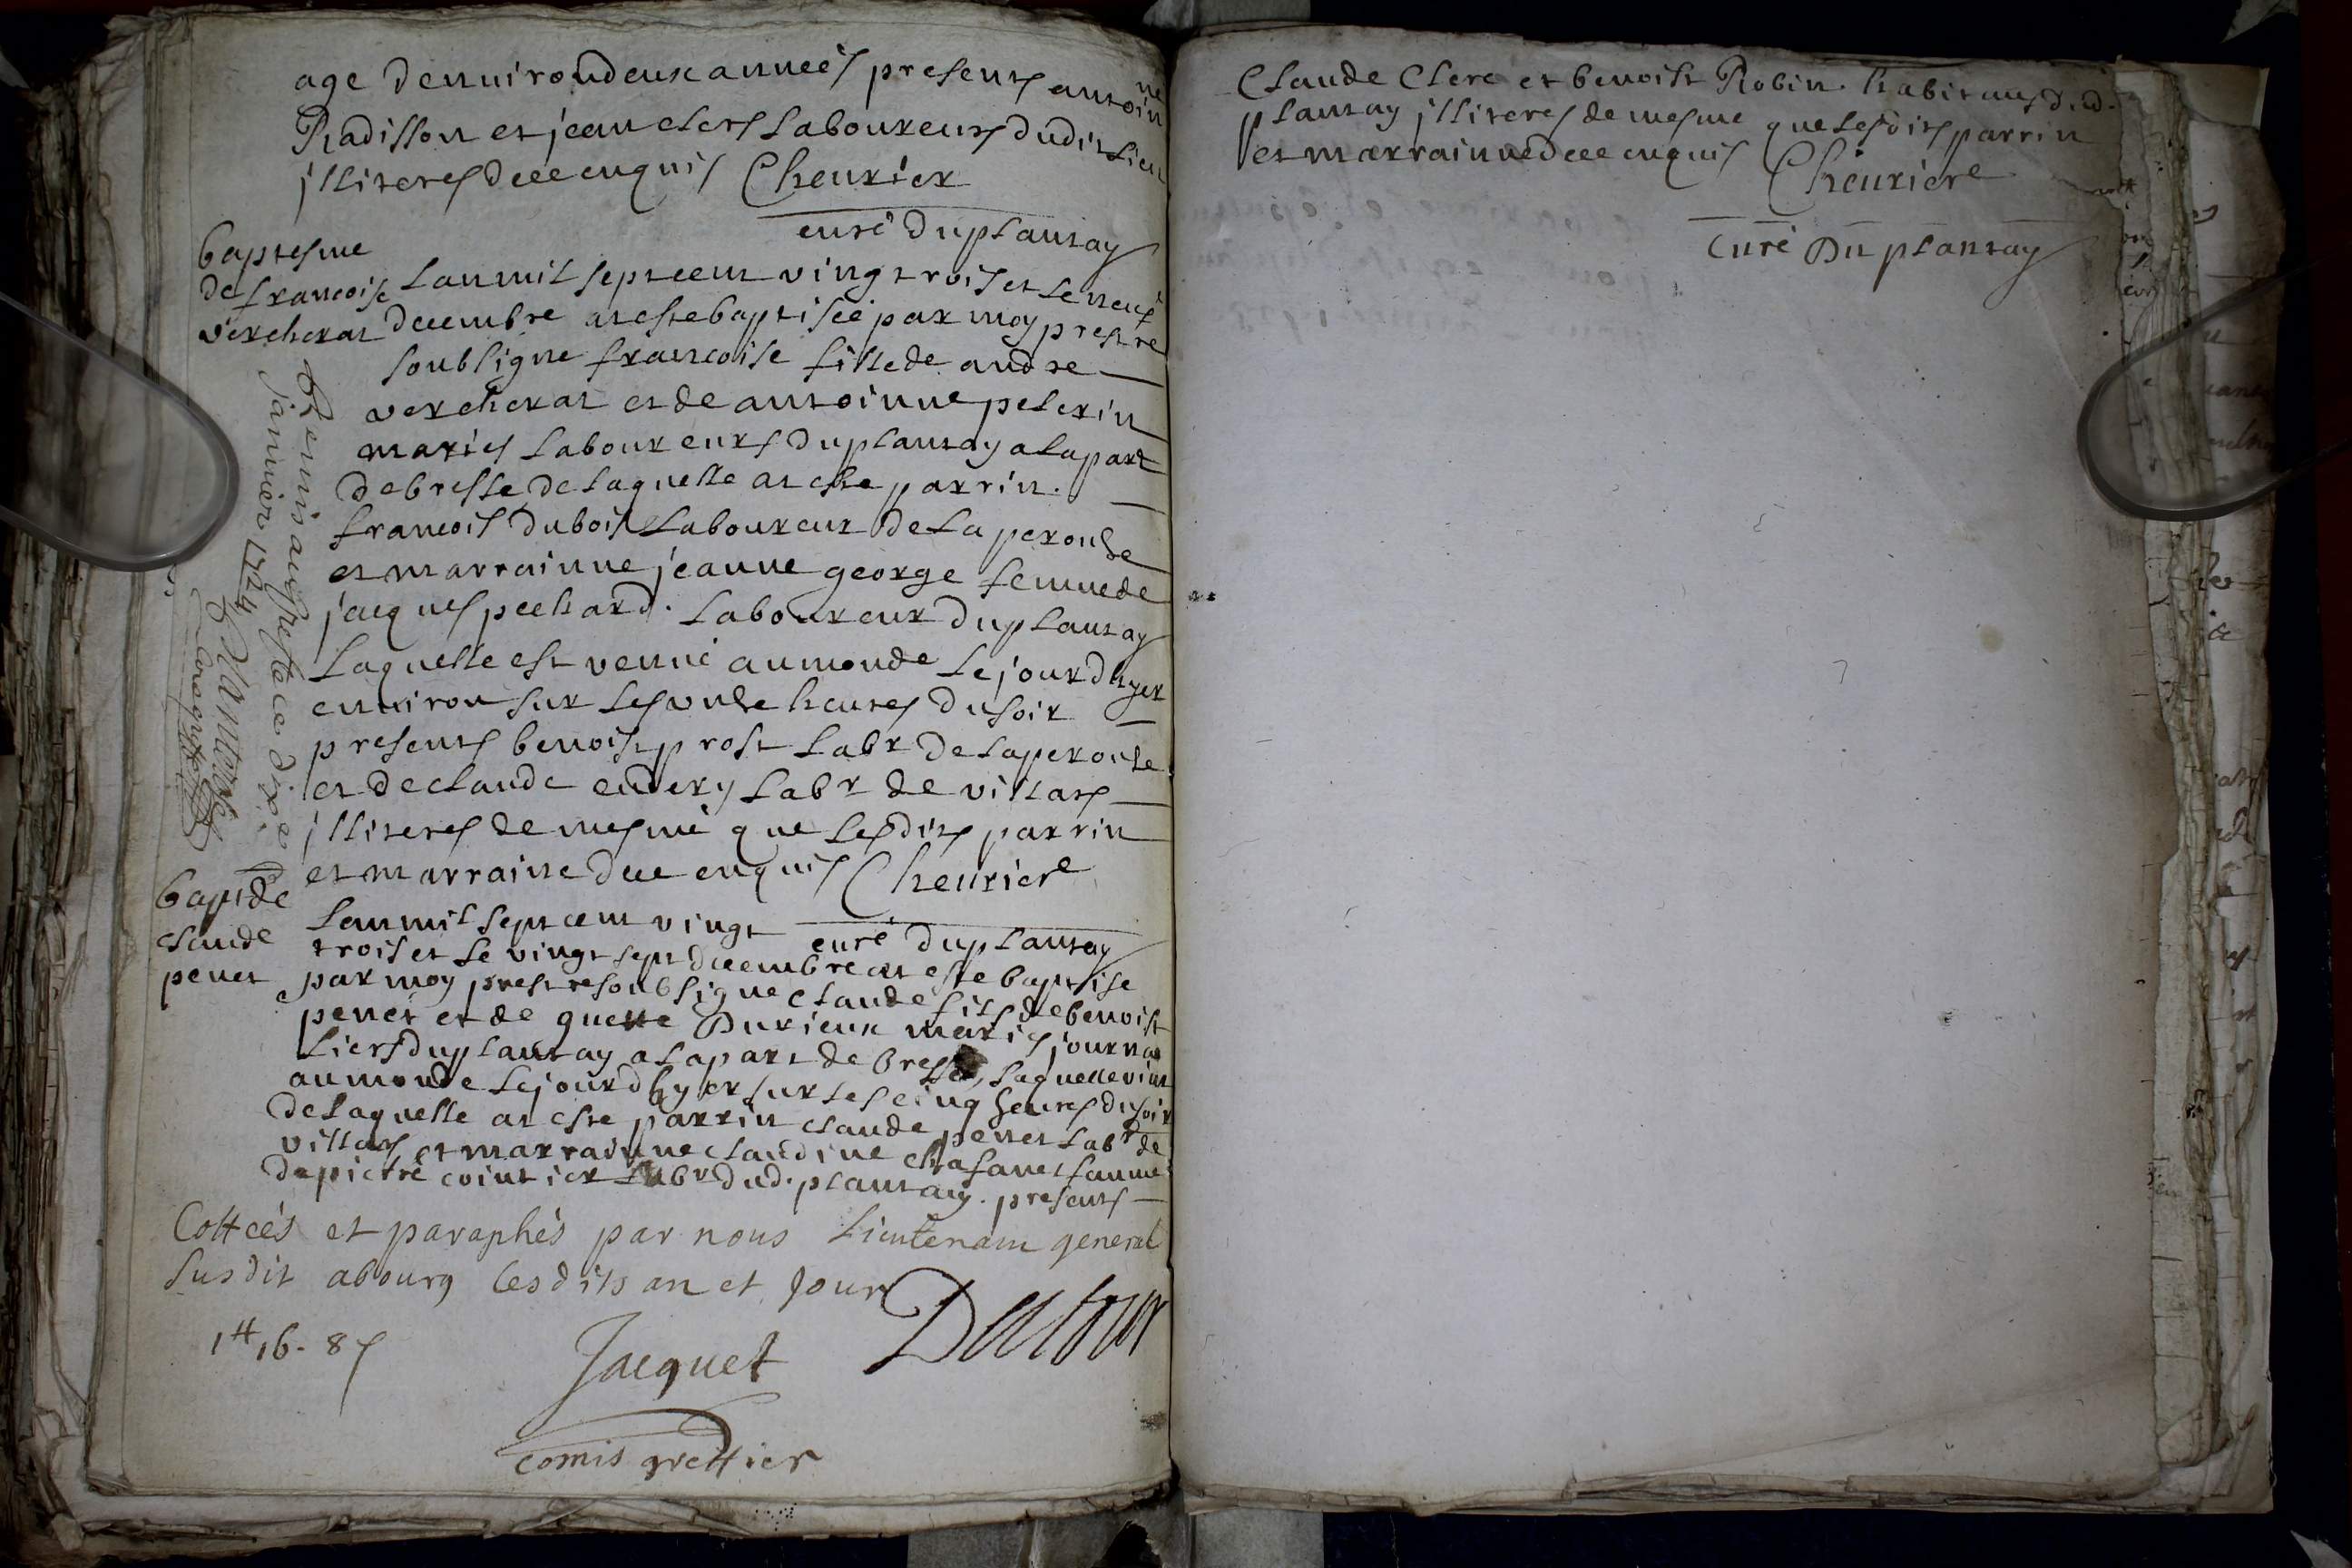 age denuiron deux anneés presents antoinne
Radisson et jean clers laboureurs dudit lieu
jlliteres dece enquis Cheurier
curé du plantay
baptesme
de francoise
vercherat
Lan mil sept cent vingt trois et le neuf
decembre at este baptisée par moy prestre
soubsigne francoise fille de andre
vercherat et de antoinne pelerin
mariés laboureurs du plantay a la part
de bresse de laquelle at este parrin.
francois dubois laboureur de la perouse
et marrainne jeanne george femme de
jacques pechard. laboureur du plantay
laquelle est venue au monde le jour dhyer
enuiron sur les onze heures du soir
presents benoist prost labr de la perouse
et de claude endery labr de villars
jlliteres de mesme que lesdits parrin
et marraine dece enquis Cheuriere
curé du plantay
Remis au greffe ce dixe
januier 1724
bapt de
claude
penet
Lan mil sept cent vingt
trois et le vingt sept decembre at este baptise
par moy prestre soubsigne claude fils de benoist
penet et de guette Durieux mariés journa
liers du plantay a la part de bresse, laquelle vint
au monde le jour dhyer sur les cinq heures du soir
de laquelle at este parrin claude penet labr de
villars et marrainne claudine chafanet famme
de pierre cointier labr dud. plantay. presents
Cottées et paraphés par nous Lieutenant general
susdit abourg lesdits an et Jour
1tt 16. 8s
Jacquet
comis greffier
Claude Clerc et benoist Robin. habitans dud.
plantay jlliteres de mesme que lesdits parrin
et marrainne dece enquis Cheuriere
Curé Du plantay